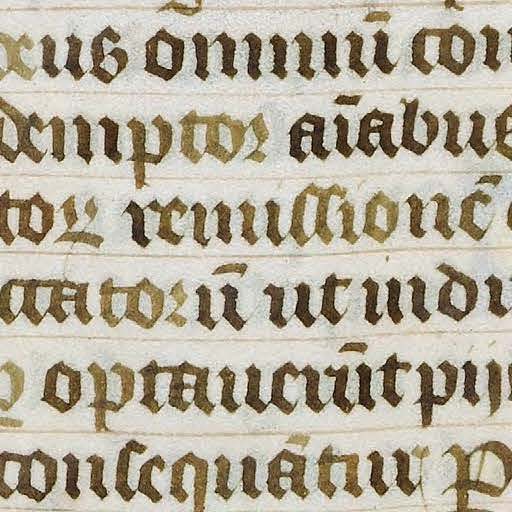 xus omniũ con
demptor aĩabus
toꝝ remissionẽ
ccatorũ ut indu
optauerũt pijs
consequãtur P